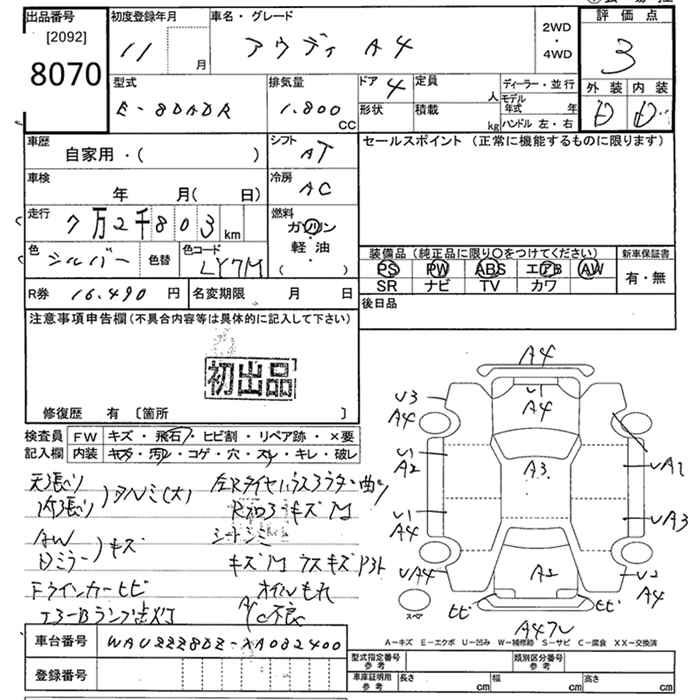 出品番号 初度登録年月 車名・グレード 2WD・4WD 評価点
[2092]
8070 11 月 アウディ A4 3
型式 排気量 ドア 4 定員 人 ディーラー・並行 外装 内装
E-8DADR 1.800 CC 形状 積載 kg モデル年式 年 D D
ハンドル 左・右
車歴 自家用・( ) シフト AT セールスポイント (正常に機能するものに限ります)
車検 年 月( 日) 冷房 AC
走行 7万2千803 km 燃料 ガソリン
軽・油
( )
色 シルバー 色替 色コード LY7M
装備品 (純正品に限り〇をつけてください) 新車保証書
PS PW ABS エアB AW 有・無
SR ナビ TV カワ
R券 16.490 円 名変期限 月 日 後日品
注意事項申告欄 (不具合内容等は具体的に記入して下さい)
初出品
修復歴 有 〔箇所 〕
検査員 FW キズ・飛石・ヒビ割・リペア跡・×要
記入欄 内装 キズ・汚れ・コゲ・穴・スレ・キレ・破レ
天張り
内張り )タルミ(大)
AW
Dミラー )キズ
シートシミ
キズ
ウスキズ
Fウインカーヒビ オイルもれ
エラーBランプ点灯 A/C不良
A4
U1
A4
U3
A4
U1
A2
A3
UA1
U1
A4
UA3
UA4
A2
U2
A4
スペア
ヒビ
ヒビ
A4ワレ
A-キズ E-エクボ U-凹み W-補修跡 S-サビ C-腐食 XX-交換済
車台番号 WAUZZZ8DZ-XA082400
登録番号
型式指定番号 参考 類別区分番号 参考
車庫証明用 参考 長さ cm 幅 cm 高さ cm